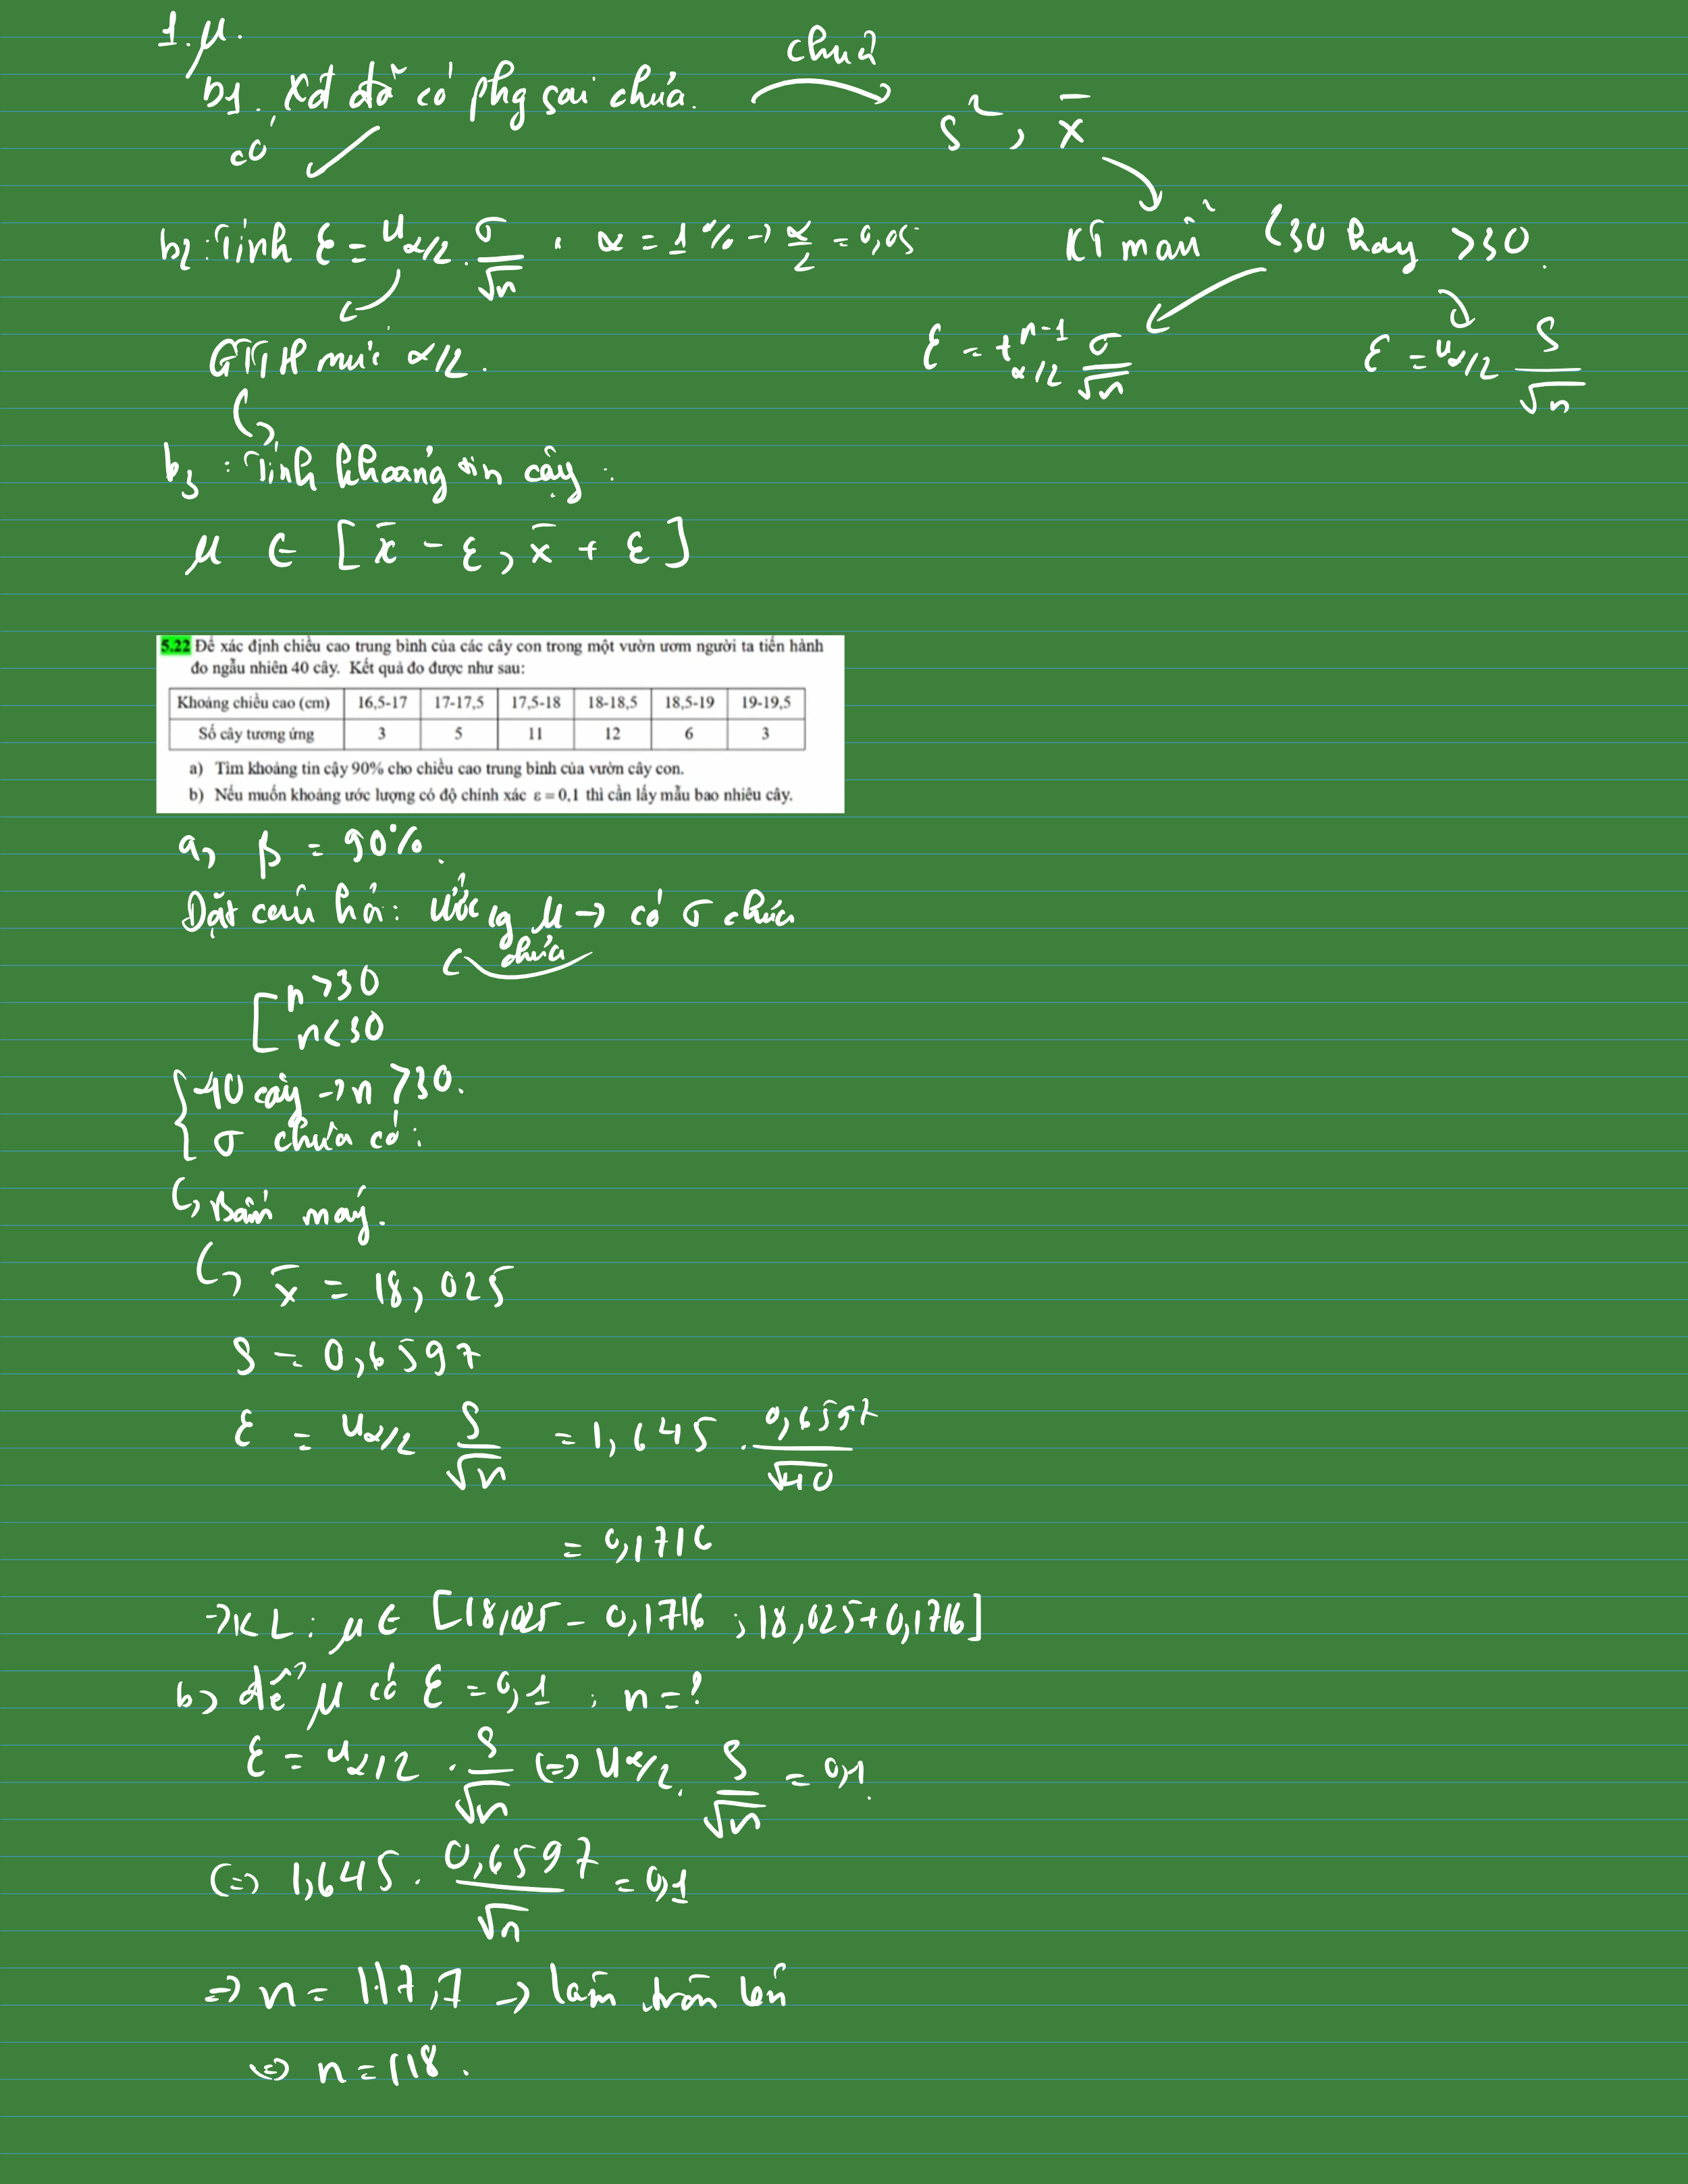 1. μ.
b1. Xđ đã có phg sai chưa.
chưa
có
s², x̄
b2: Tính ε = u α/2 . σ/√n . α = 1% → α/2 = 0,05
KT mẫu <30 hay >30.
GTTH mức α/2.
ε = t^{n-1}_{α/2} σ/√n
ε = u α/2 S/√n
b3: Tính khoảng tin cậy:
μ ∈ [x̄ - ε, x̄ + ε]
5.22 Để xác định chiều cao trung bình của các cây con trong một vườn ươm người ta tiến hành
đo ngẫu nhiên 40 cây. Kết quả đo được như sau:
Khoảng chiều cao (cm) 16,5-17 17-17,5 17,5-18 18-18,5 18,5-19 19-19,5
Số cây tương ứng 3 5 11 12 6 3
a) Tìm khoảng tin cậy 90% cho chiều cao trung bình của vườn cây con.
b) Nếu muốn khoảng ước lượng có độ chính xác ε = 0,1 thì cần lấy mẫu bao nhiêu cây.
a, β = 90%.
Đặt câu hỏi: Ước lg μ → có σ chưa
chưa
[ n >30
n < 30
{ 40 cây → n >30.
σ chưa có:
↪ Bấm máy.
↪ x̄ = 18,025
S = 0,6597
ε = u α/2 S/√n = 1,645 . 0,6597/√40
= 0,1716
→ KL: μ ∈ [18,025 - 0,1716 ; 18,025 + 0,1716]
b, để μ có ε = 0,1 ; n = ?
ε = u α/2 . S/√n (=) u α/2 . S/√n = 0,1.
(=) 1,645 . 0,6597/√n = 0,1
=> n = 117,7 → làm tròn lên
=> n = 118.